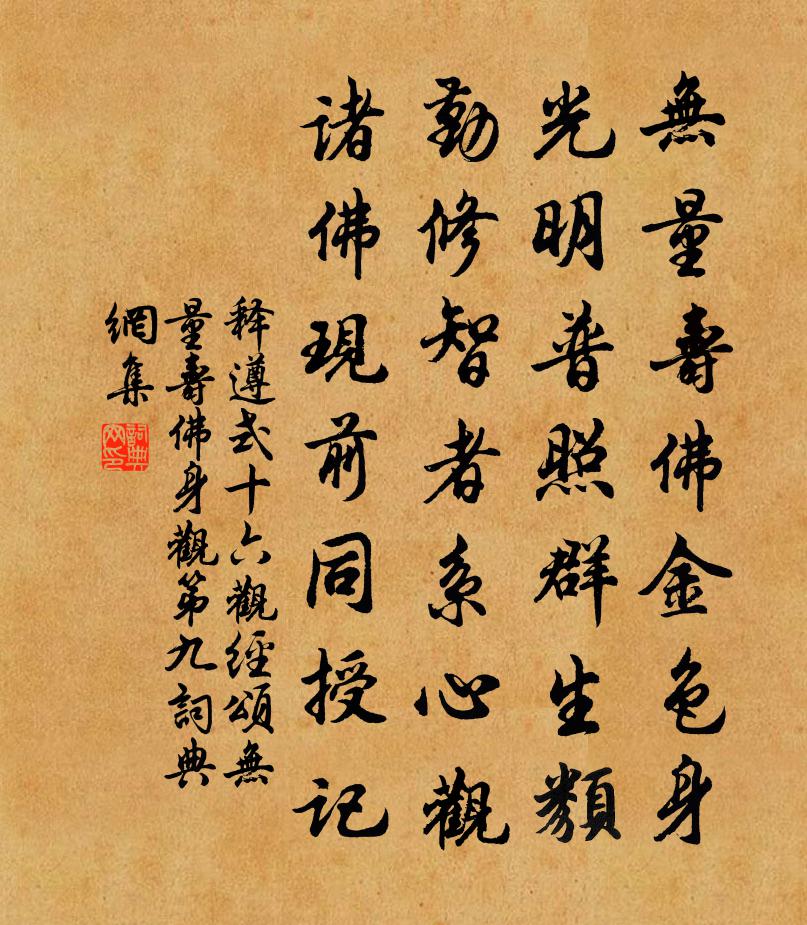 無量壽佛金色身
光明普照群生類
勤修智者系心觀
诸佛現前同授记
释遵式十六觀經頌無
量壽佛身觀第九詞典
網集
詞典
网印